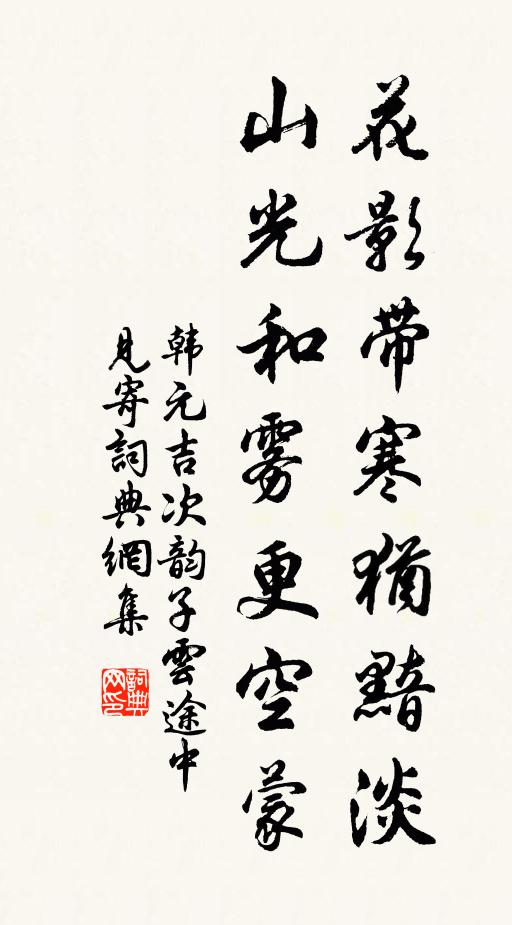 花影帶寒猶黯淡
山光和雾更空蒙
韩元吉次韵子雲途中
見寄詞典網集
詞典网印